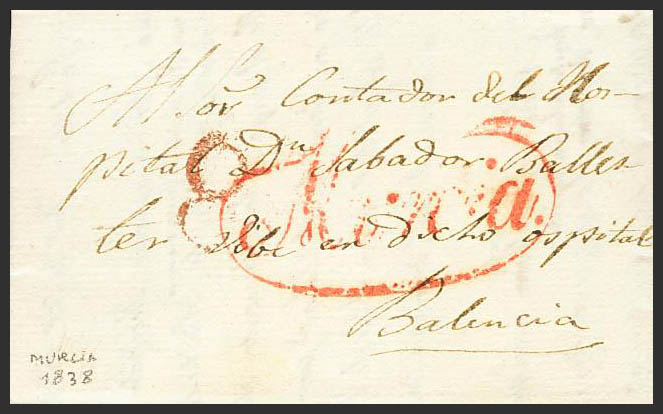 Al Sor Contador del Hos-
pital Dn Sabador Balles-
ter Vibe en dicho ospital
Balencia
8
Murcia.
MURCIA
1838